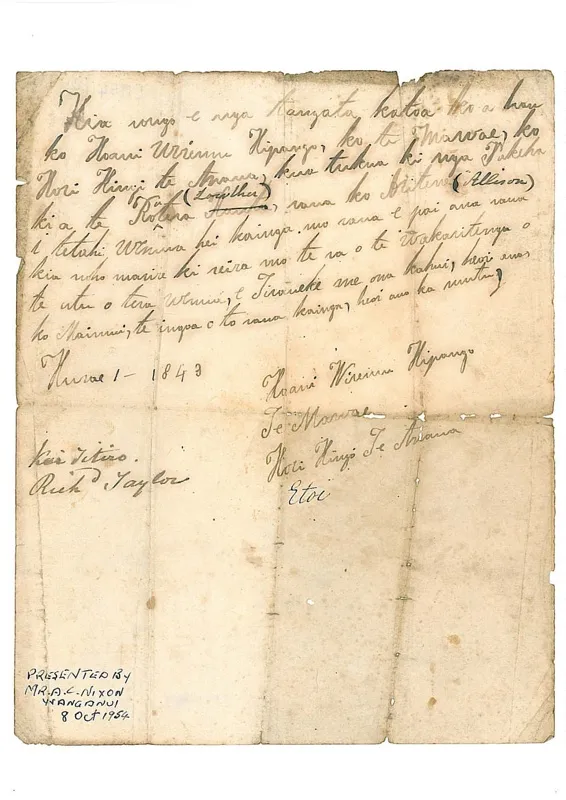 Kia rongo e nga tangata katoa ko a hau
ko Hoani Wiremu Hipango, ko te Mawae, ko
Hori Hingi te Anaua, kua tukua ki nga Pakeha
ki a te Rotera (Lowther) raua ko Aritena (Allison)
i tetahi Whenua hei kainga mo raua e pai ana raua
kia noho marire ki reira mo te ra o te Wakaritenga o
te utu o tera Wenua, e Tiraueke me ona kahui, heoi ano
ko Mainui, te ingoa o to raua kainga, heoi ano ka mutu,
Hurae 1 - 1843
Hoani Wiremu Hipango
Te Mawae
Hori Hingi Te Anaua
Etoi
Kai Titiro.
Richd Taylor
PRESENTED BY
MR. A. C. NIXON
WANGANUI
8 Oct 1954